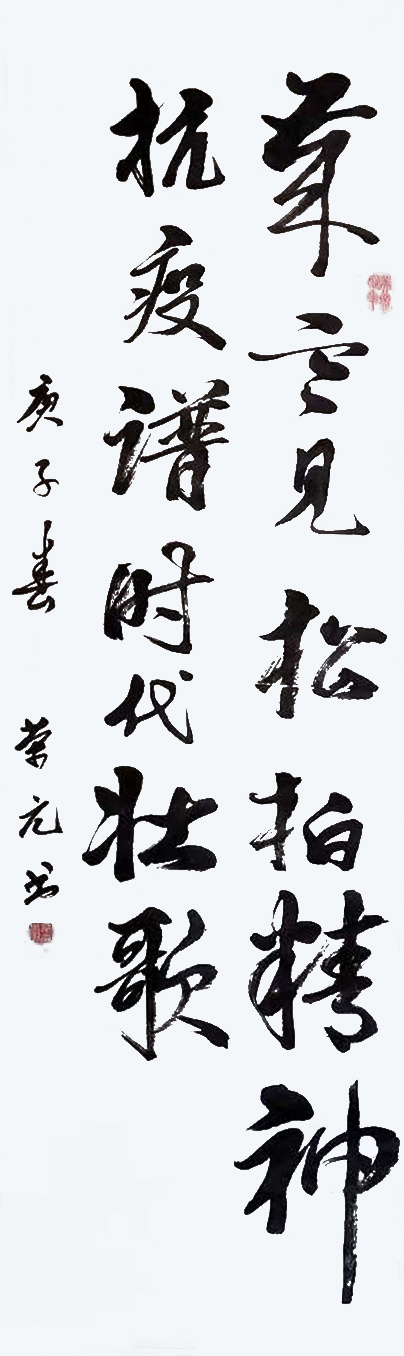 笔立见松柏精神
抗疫谱时代壮歌
庚子春 荣元书